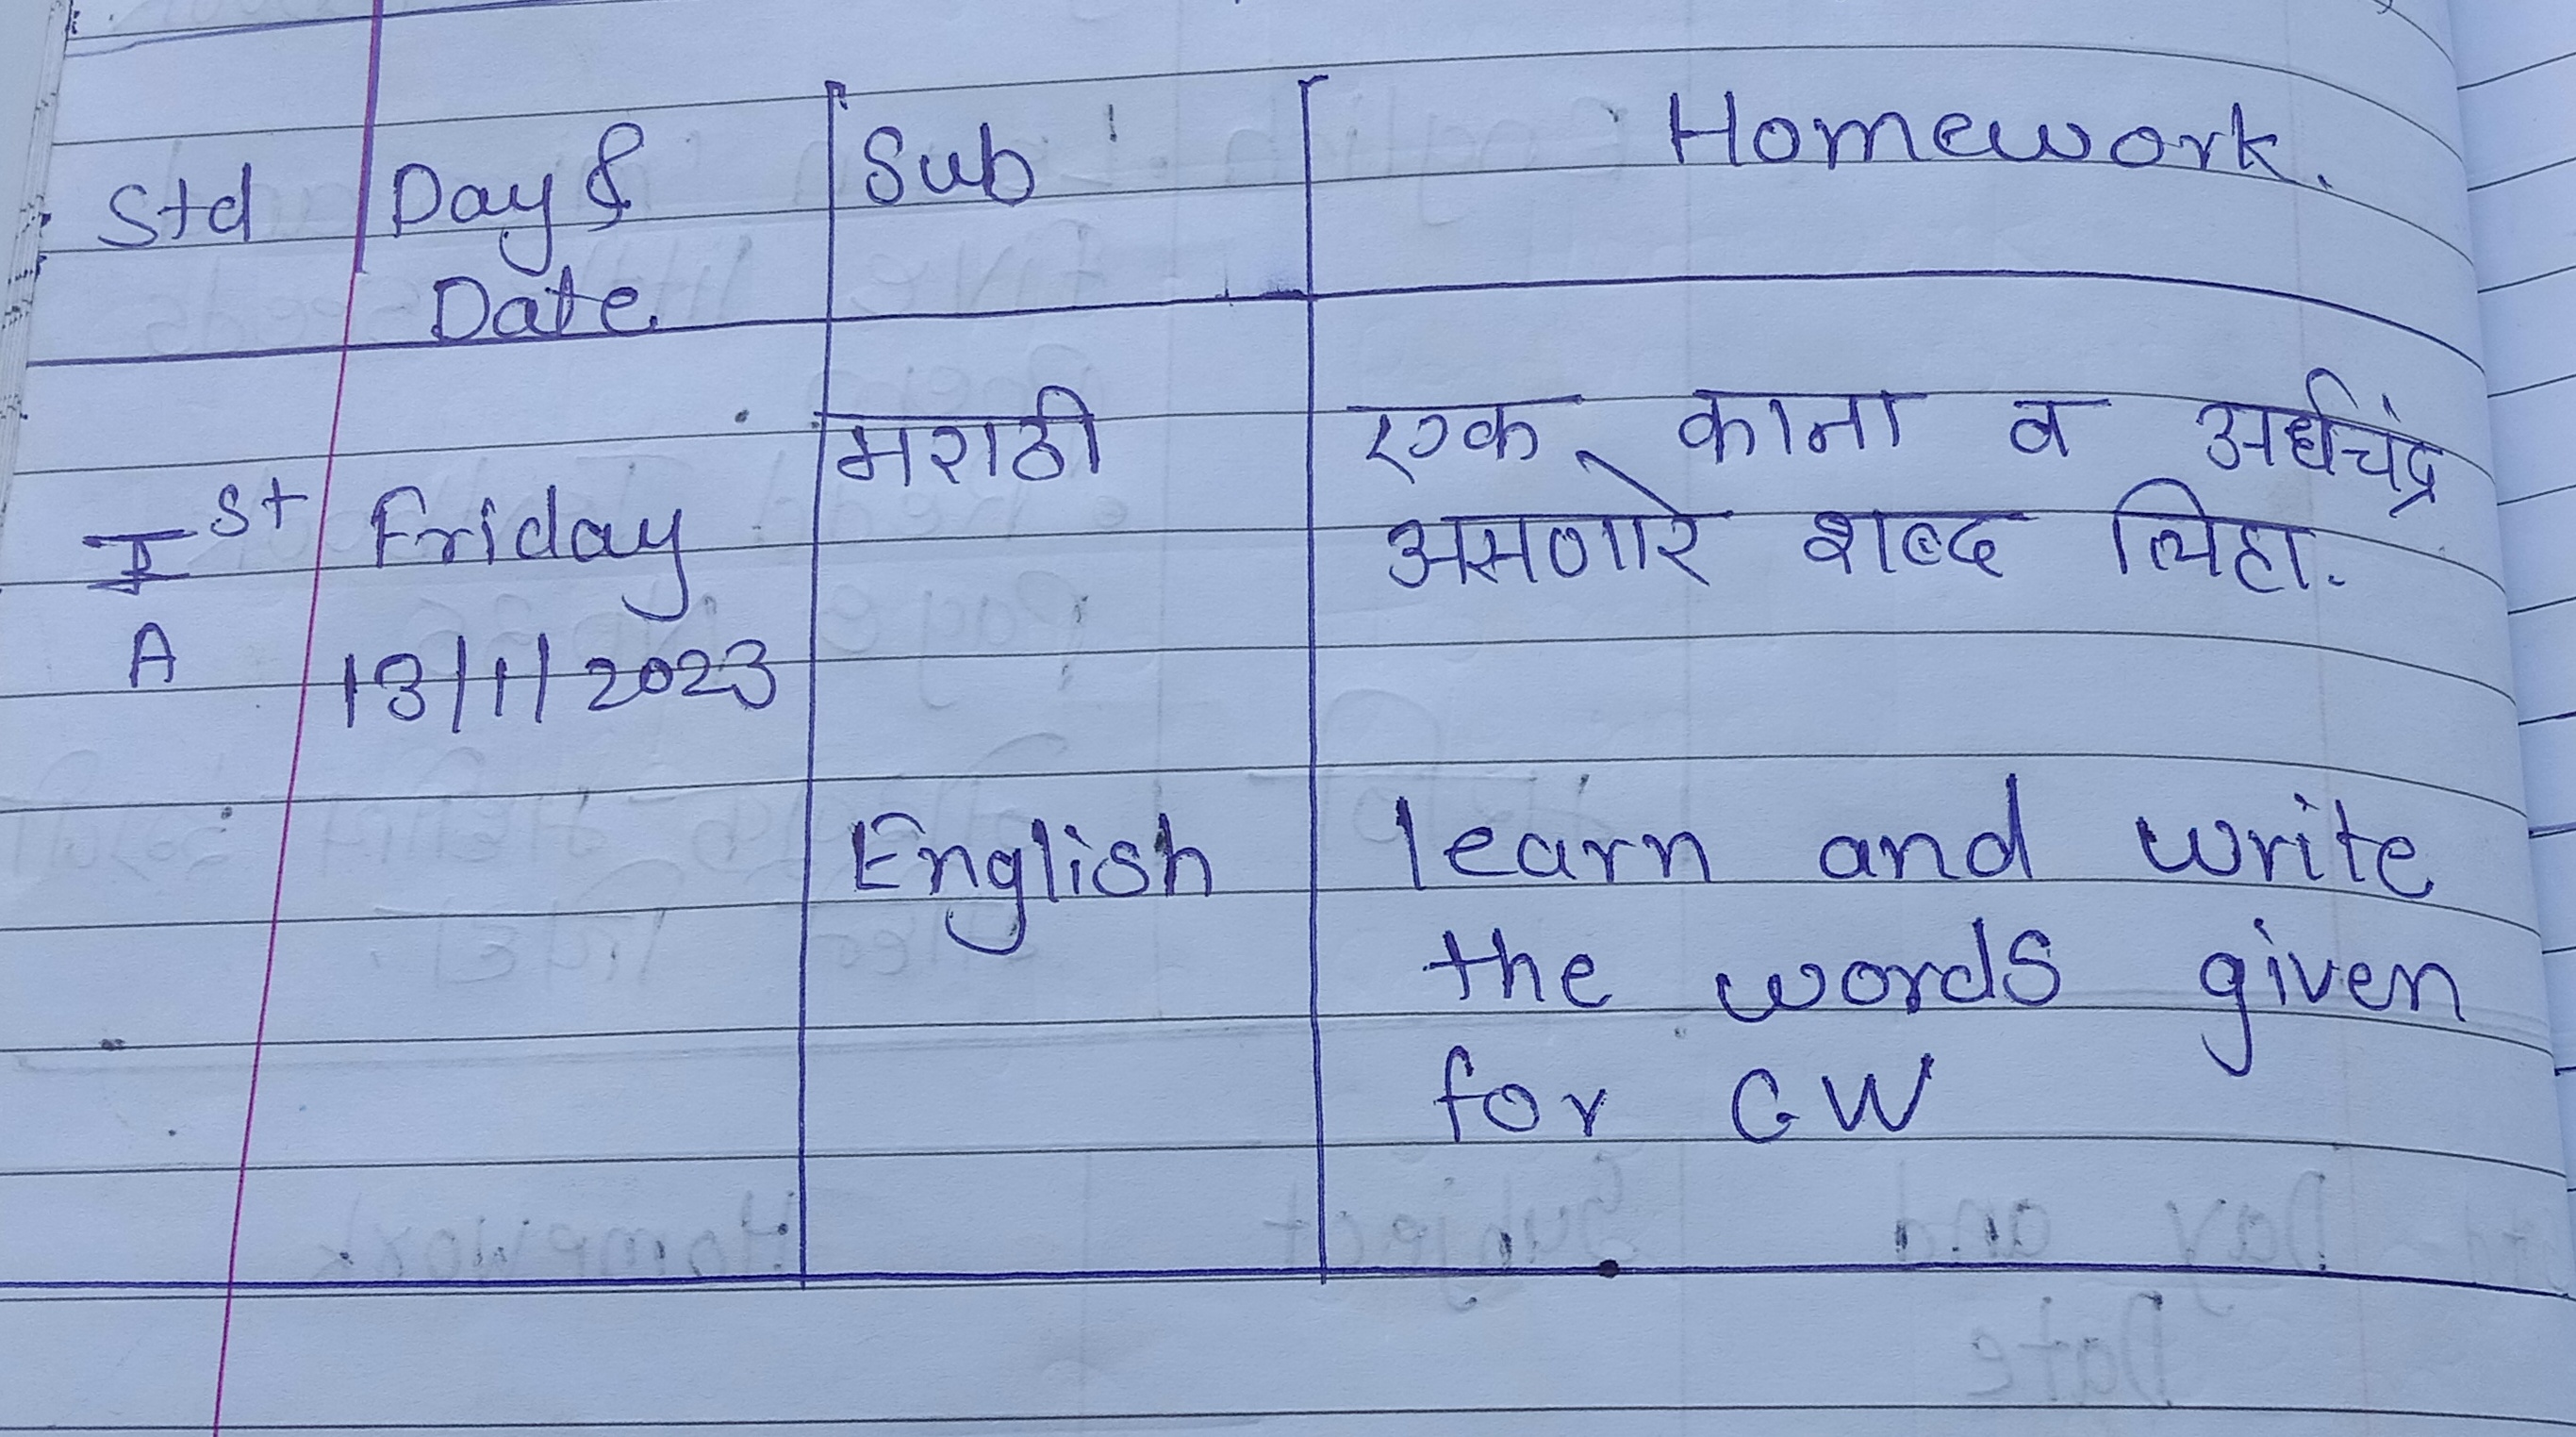 Std Day & Sub Homework.
Date
मराठी एक काना व अर्धचंद्र
Ist Friday असणारे शब्द लिहा.
A 13/1/2023
English learn and write
the words given
for GW